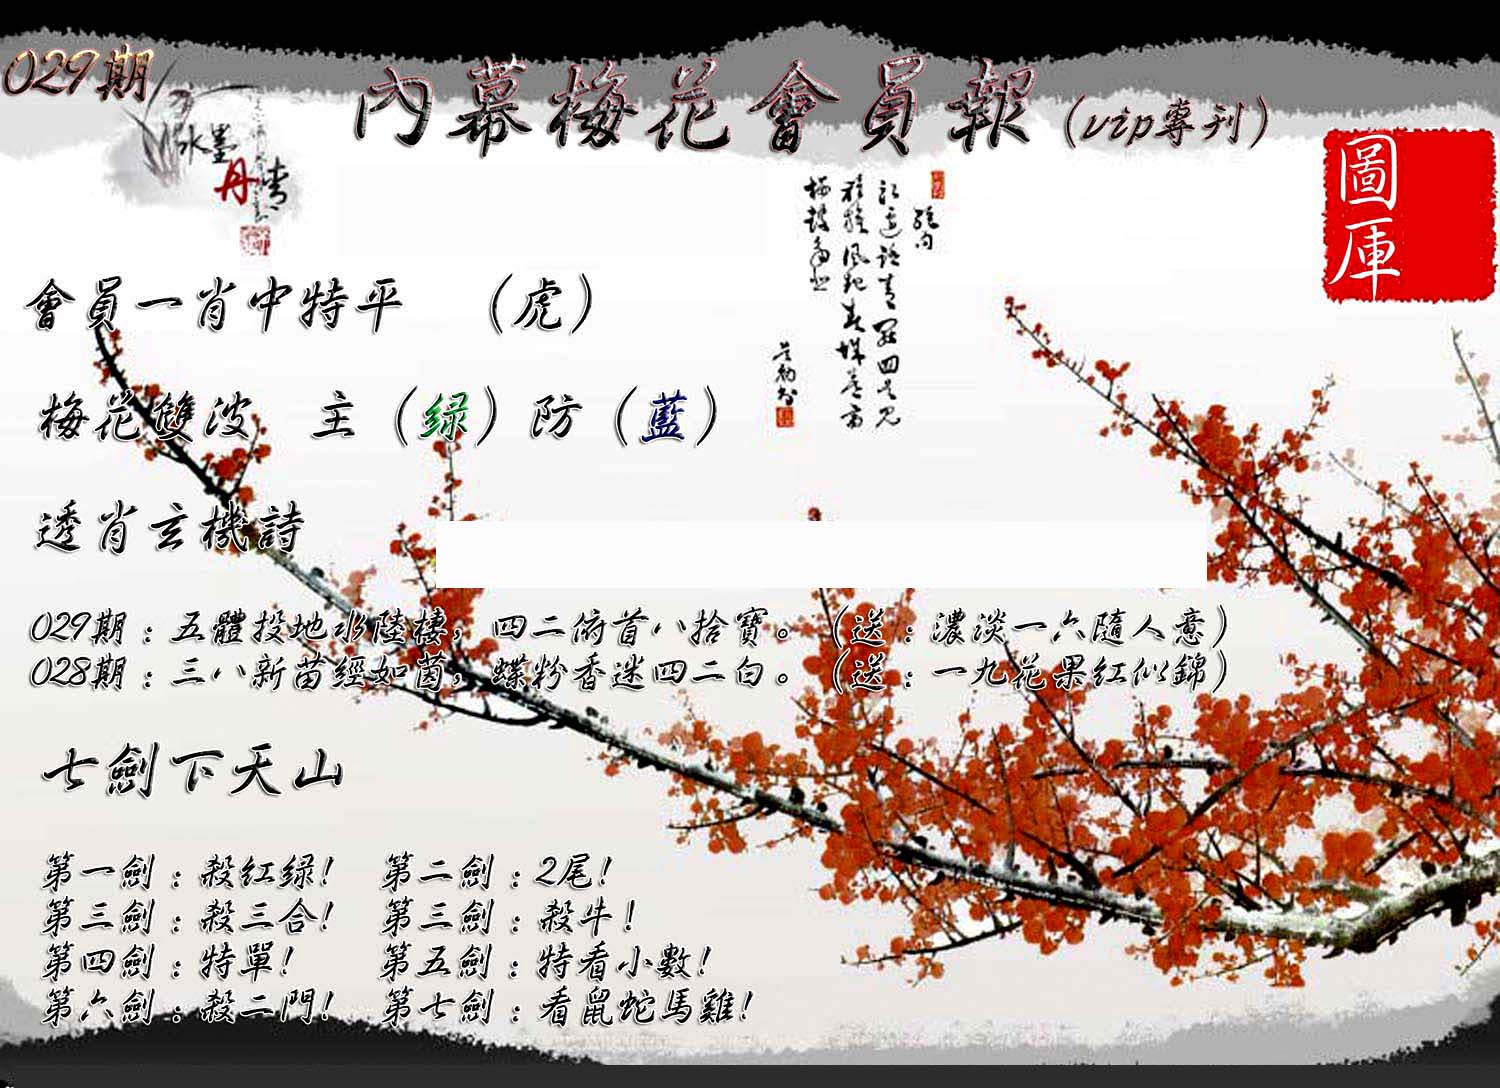 029期
內幕梅花會員報（vip專刊）
水墨
丹青
圖庫
會員一肖中特平　（虎）
梅花雙波　主（绿）防（藍）
透肖玄機詩
029期：五體投地水陸棲，四二俯首八拾寶。（送：濃淡一六隨人意）
028期：三八新苗經如茵，蝶粉香迷四二白。（送：一九花果紅似錦）
七劍下天山
第一劍：殺红绿！　第二劍：2尾！
第三劍：殺三合！　第三劍：殺牛！
第四劍：特單！　第五劍：特看小數！
第六劍：殺二門！　第七劍：看鼠蛇馬雞！